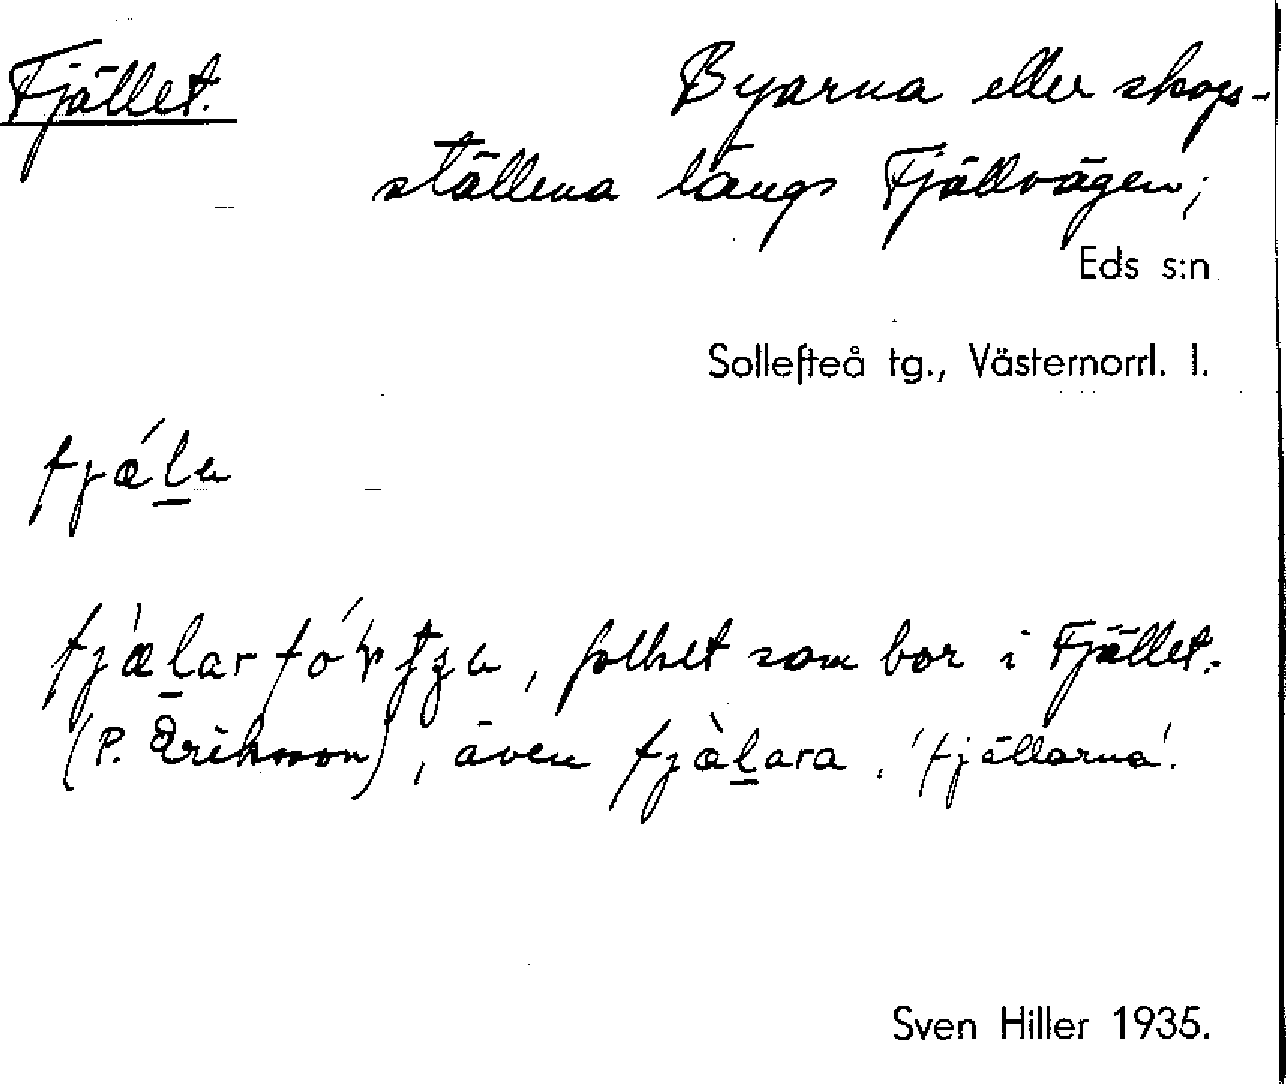 Fjället. Byarna eller skogs-
ställena längs Fjällvägen;
Eds s:n
Sollefteå tg., Västernorrl. l.
fjǽl̲a
fjæ̀l̲ar , folket som bor i Fjället.
(P. Eriksson), även fjæ̀l̲ara , 'fjällarna'.
Sven Hiller 1935.